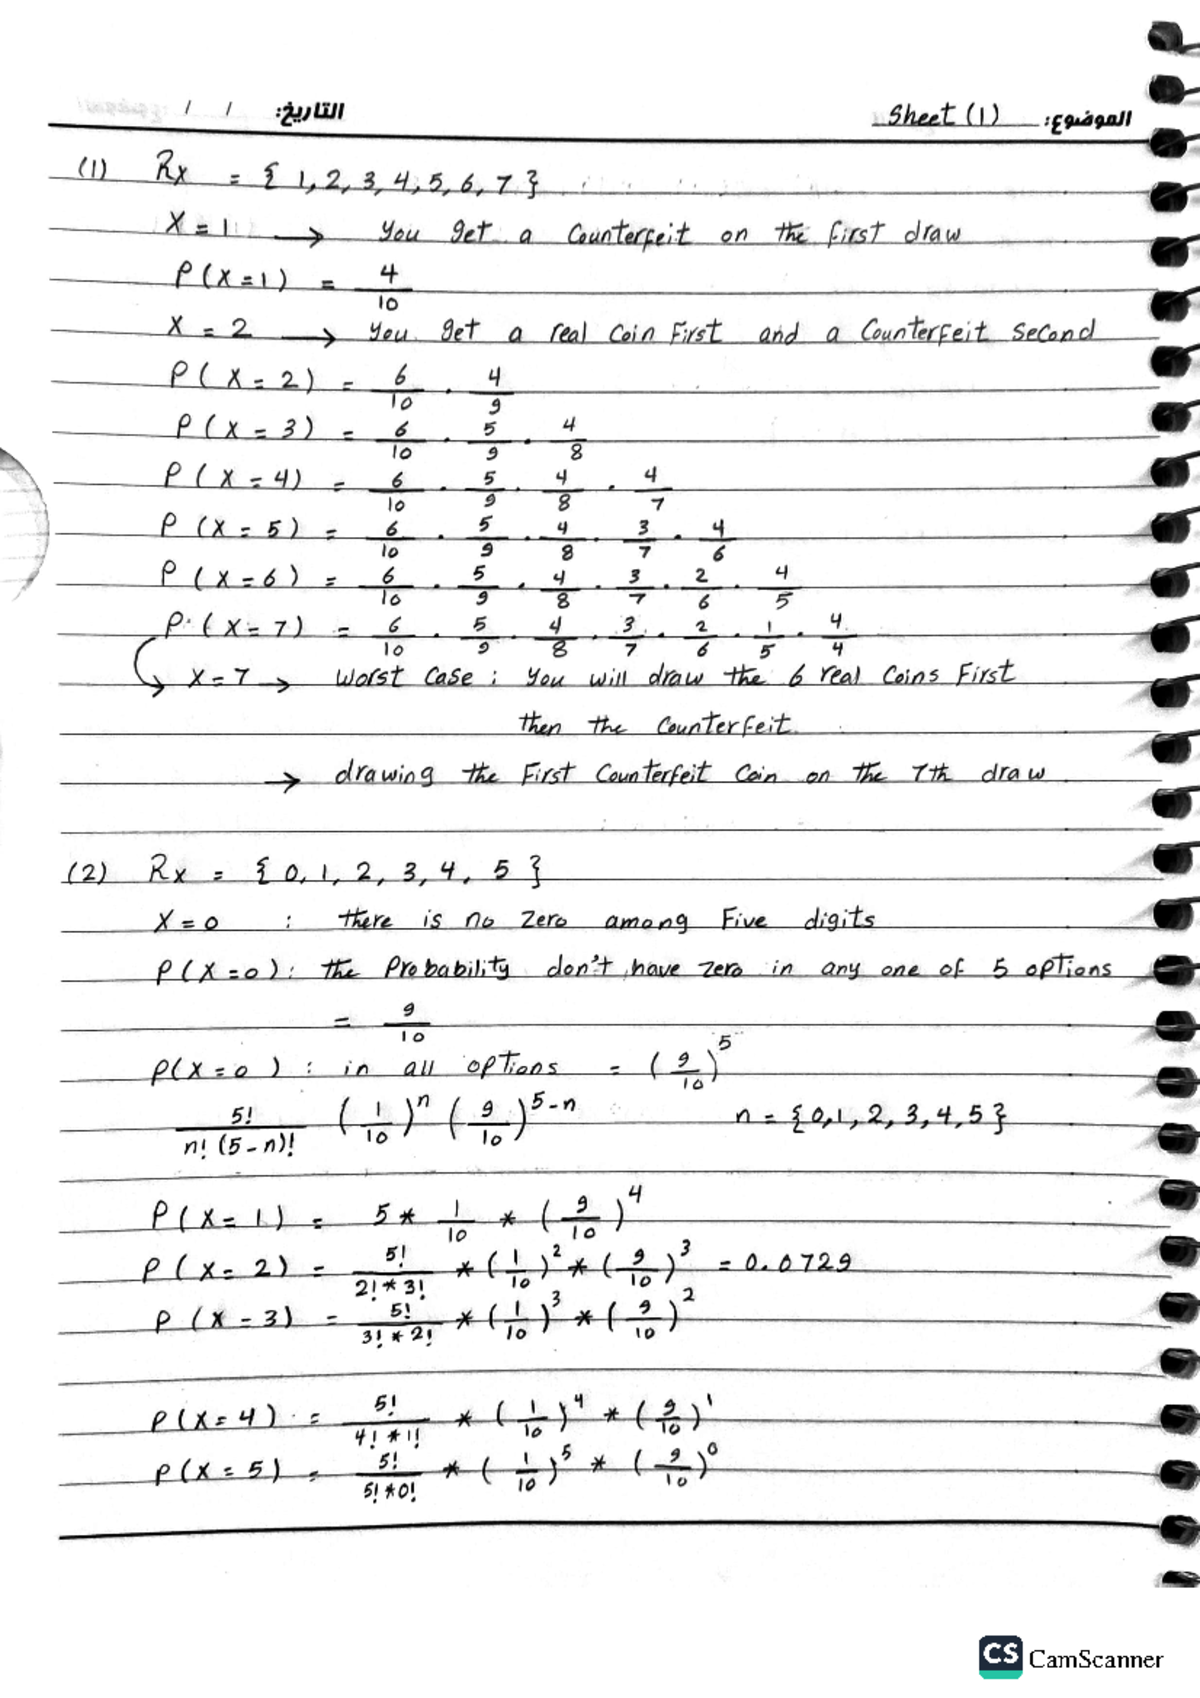 التاريخ: / /
الموضوع: Sheet (1)
(1) Rx = { 1, 2, 3, 4, 5, 6, 7 }
X = 1 → you get a Counterfeit on the first draw
P(X=1) = 4/10
X = 2 → you get a real Coin First and a Counterfeit Second
P(X = 2) = 6/10 . 4/9
P(X = 3) = 6/10 . 5/9 . 4/8
P(X = 4) = 6/10 . 5/9 . 4/8 . 4/7
P(X = 5) = 6/10 . 5/9 . 4/8 . 3/7 . 4/6
P(X = 6) = 6/10 . 5/9 . 4/8 . 3/7 . 2/6 . 4/5
P(X = 7) = 6/10 . 5/9 . 4/8 . 3/7 . 2/6 . 1/5 . 4/4
X = 7 → Worst Case : You will draw the 6 real Coins First
then the Counterfeit.
→ drawing the First Counterfeit Coin on the 7th draw
(2) Rx = { 0, 1, 2, 3, 4, 5 }
X = 0 : there is no Zero among Five digits
P(X = 0): the Probability don't have zero in any one of 5 options
= 9/10
P(X = 0) : in all options = (9/10)^5
5!/n!(5-n)! (1/10)^n (9/10)^5-n n = {0, 1, 2, 3, 4, 5}
P(X = 1) = 5 * 1/10 * (9/10)^4
P(X = 2) = 5!/2!*3! * (1/10)^2 * (9/10)^3 = 0.0729
P(X = 3) = 5!/3!*2! * (1/10)^3 * (9/10)^2
P(X = 4) = 5!/4!*1! * (1/10)^4 * (9/10)^1
P(X = 5) = 5!/5!*0! * (1/10)^5 * (9/10)^0
CS CamScanner